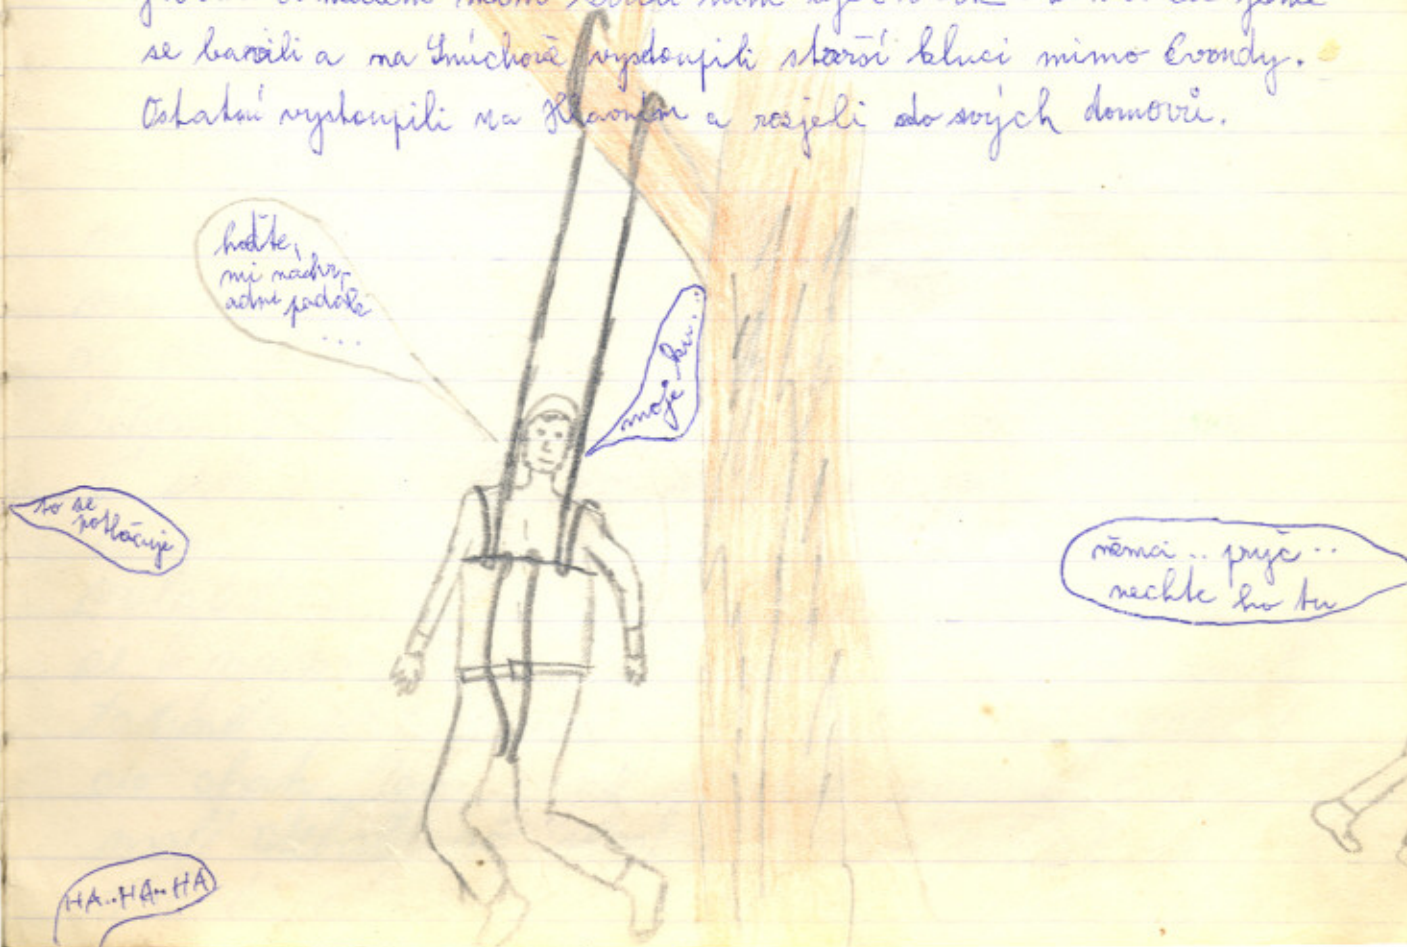 se bavili a na Smíchově vystoupili starší kluci mimo Evondy.
Ostatní vystoupili na Hlavním a rozjeli do svých domovů.
hoďte,
mi náhr-
adní padák
...
moje ku...
to se
potlačuje
němci .. pryč ..
nechte ho tu
HA..HA..HA